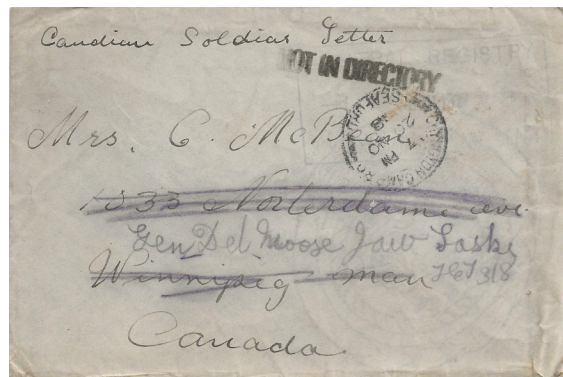 Candian Soldias Letter
NOT IN DIRECTORY
SEAFORD
PM
NO
Mrs. C. McBean
1833 Noterdame ave.
Gen Del Moose Jaw Sask
Winnipig man
Canada